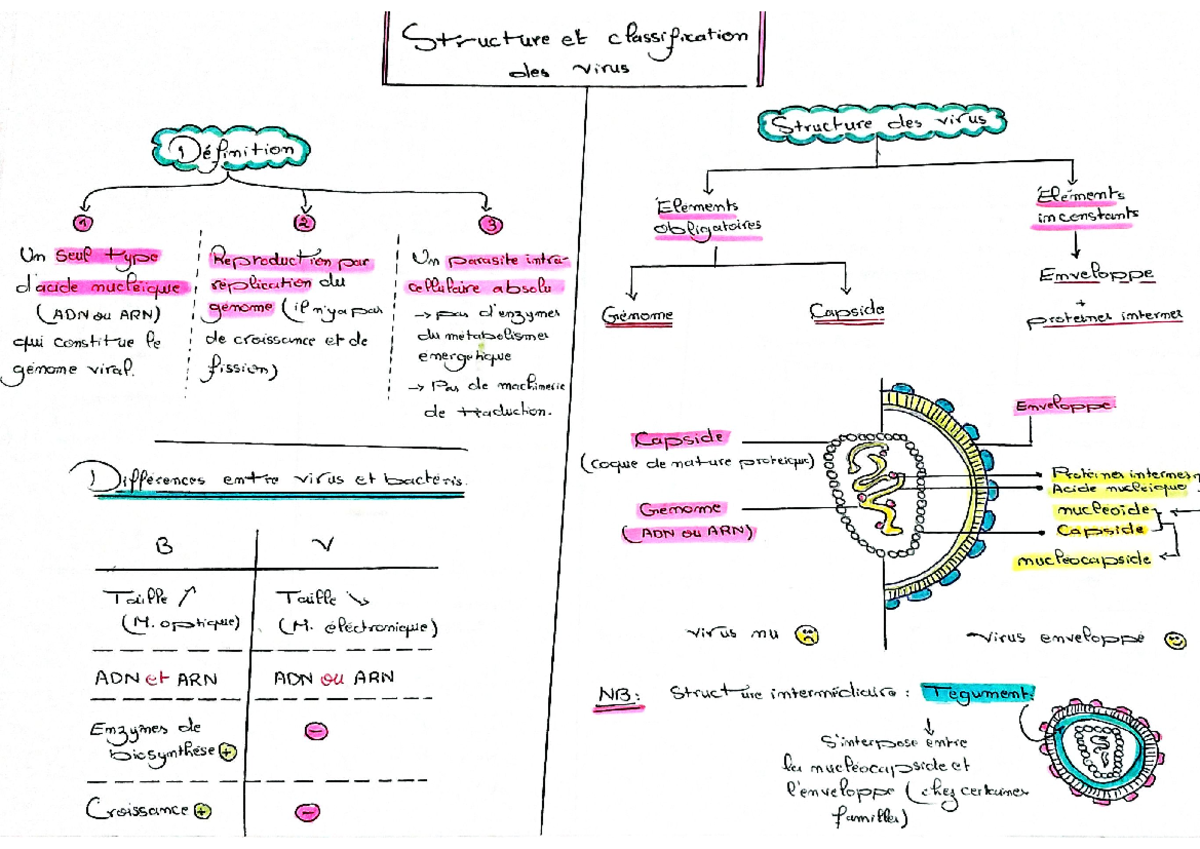 Structure et classification
des virus
1) Définition
1
Un seul type
d'acide nucléique
(ADN ou ARN)
qui constitue le
génome viral.
2
Reproduction par
réplication du
génome (il n'ya pas
de croissance et de
fission)
3
Un parasite intra-
cellulaire absolu
→ pas d'enzymes
du métabolismes
energetique
→ Pas de machinerie
de traduction.
1) Différences entre virus et bactéris.
B
V
Taille ↗
(M. optique)
Taille ↘
(M. éléctronique)
ADN et ARN
ADN ou ARN
Enzymes de
biosynthèse +
-
Croissance +
-
Structure des virus
Elements
obligatoires
Génome
Capside
Eléments
inconstants
Enveloppe
+
proteines internes
Capside
(coque de nature proteique)
Génome
(ADN ou ARN)
Enveloppe
Protéines internes
Acide nucleique
nucleoide
Capside
nucléocapside
virus nu
virus enveloppé
NB: Structure intermédiaire : Tegument.
S'interpose entre
la nucléocapside et
l'enveloppe (chez certaines
familles)